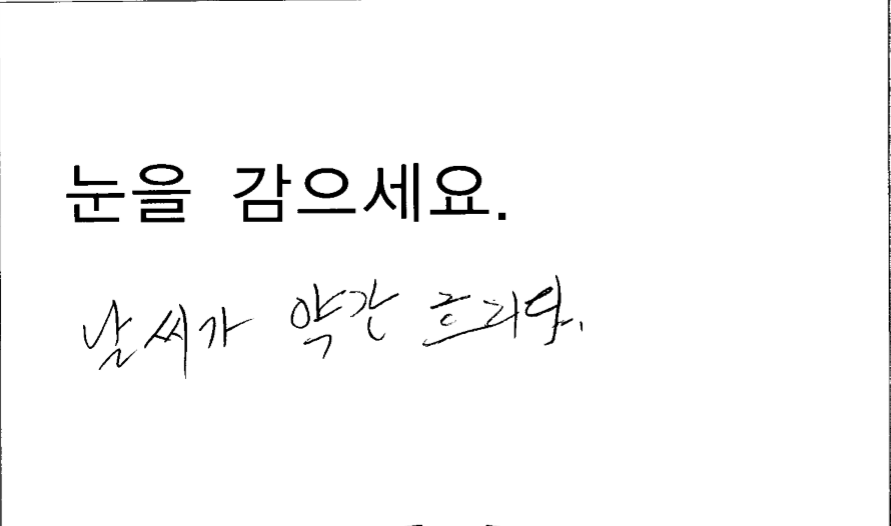 눈을 감으세요.
날씨가 약간 흐리다.